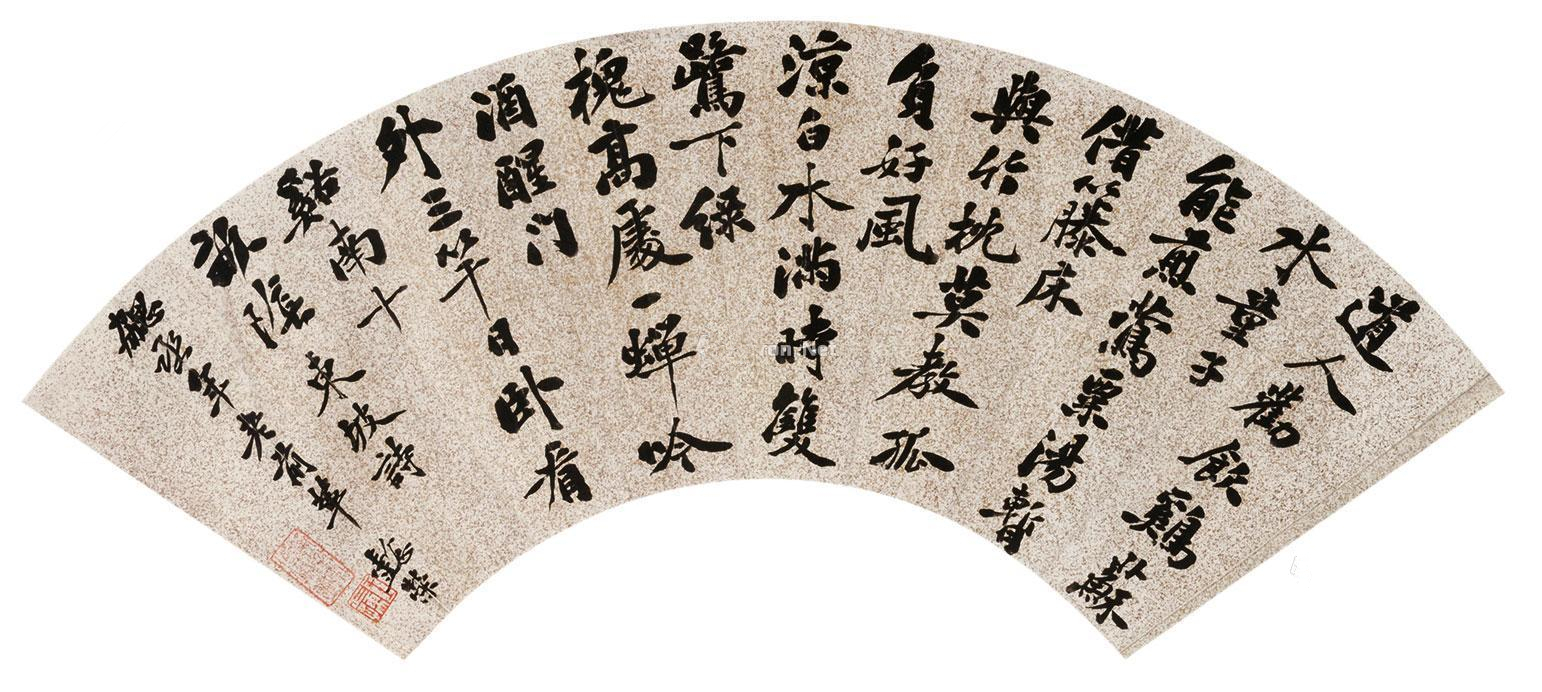 道人勸飲鷄蘇
水童子
能煎鶯粟湯暫
借籐床
與行枕莫教孤
負好風
涼白水滿時雙
鷺下綠
槐高處一蟬吟
酒醒門
外三竿日卧看
谿南十
畝陰 東坡詩
丞年老前輩 懿榮